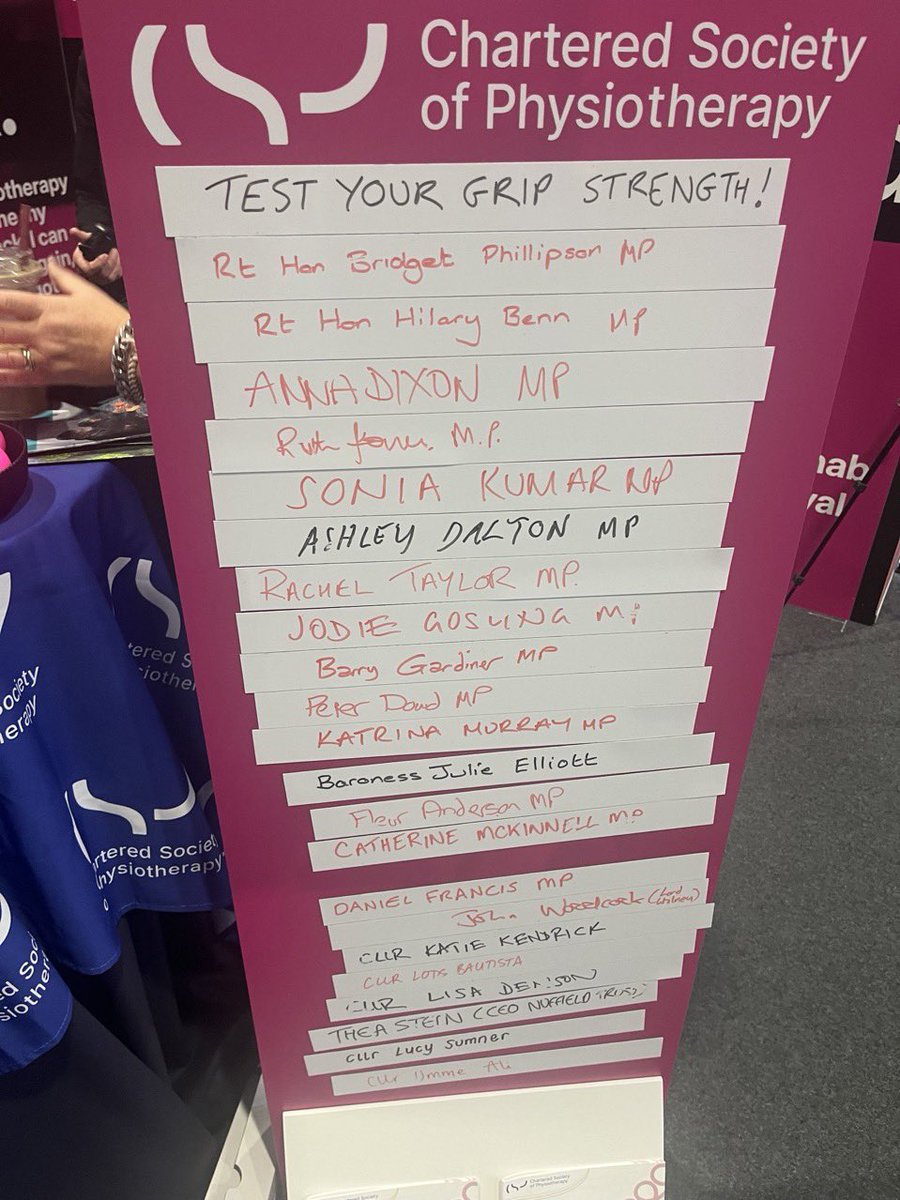 Chartered Society
of Physiotherapy
TEST YOUR GRIP STRENGTH!
Rt Hon Bridget Phillipson MP
Rt Hon Hilary Benn MP
ANNA DIXON MP
Ruth Jones M.P.
SONIA KUMAR MP
ASHLEY DALTON MP
RACHEL TAYLOR MP.
JODIE GOSLING MP
Barry Gardiner MP
Peter Dowd MP
KATRINA MURRAY MP
Baroness Julie Elliott
Fleur Anderson MP
CATHERINE MCKINNELL MP
DANIEL FRANCIS MP
John Woodcock (Lord Walney)
CLLR KATIE KENDRICK
CLLR LOTS BAUTISTA
CLLR LISA DENSON
THEA STEIN (CEO NUFFIELD TRUST)
Cllr Lucy Sumner
Cllr Umme Ali
otherapy
I can
nab
val
ered S
iother
Society
herapy
rtered Society
hysiotherapy
ed Soc
siothe
Chartered Society
Chartered Society
of Physiotherapy